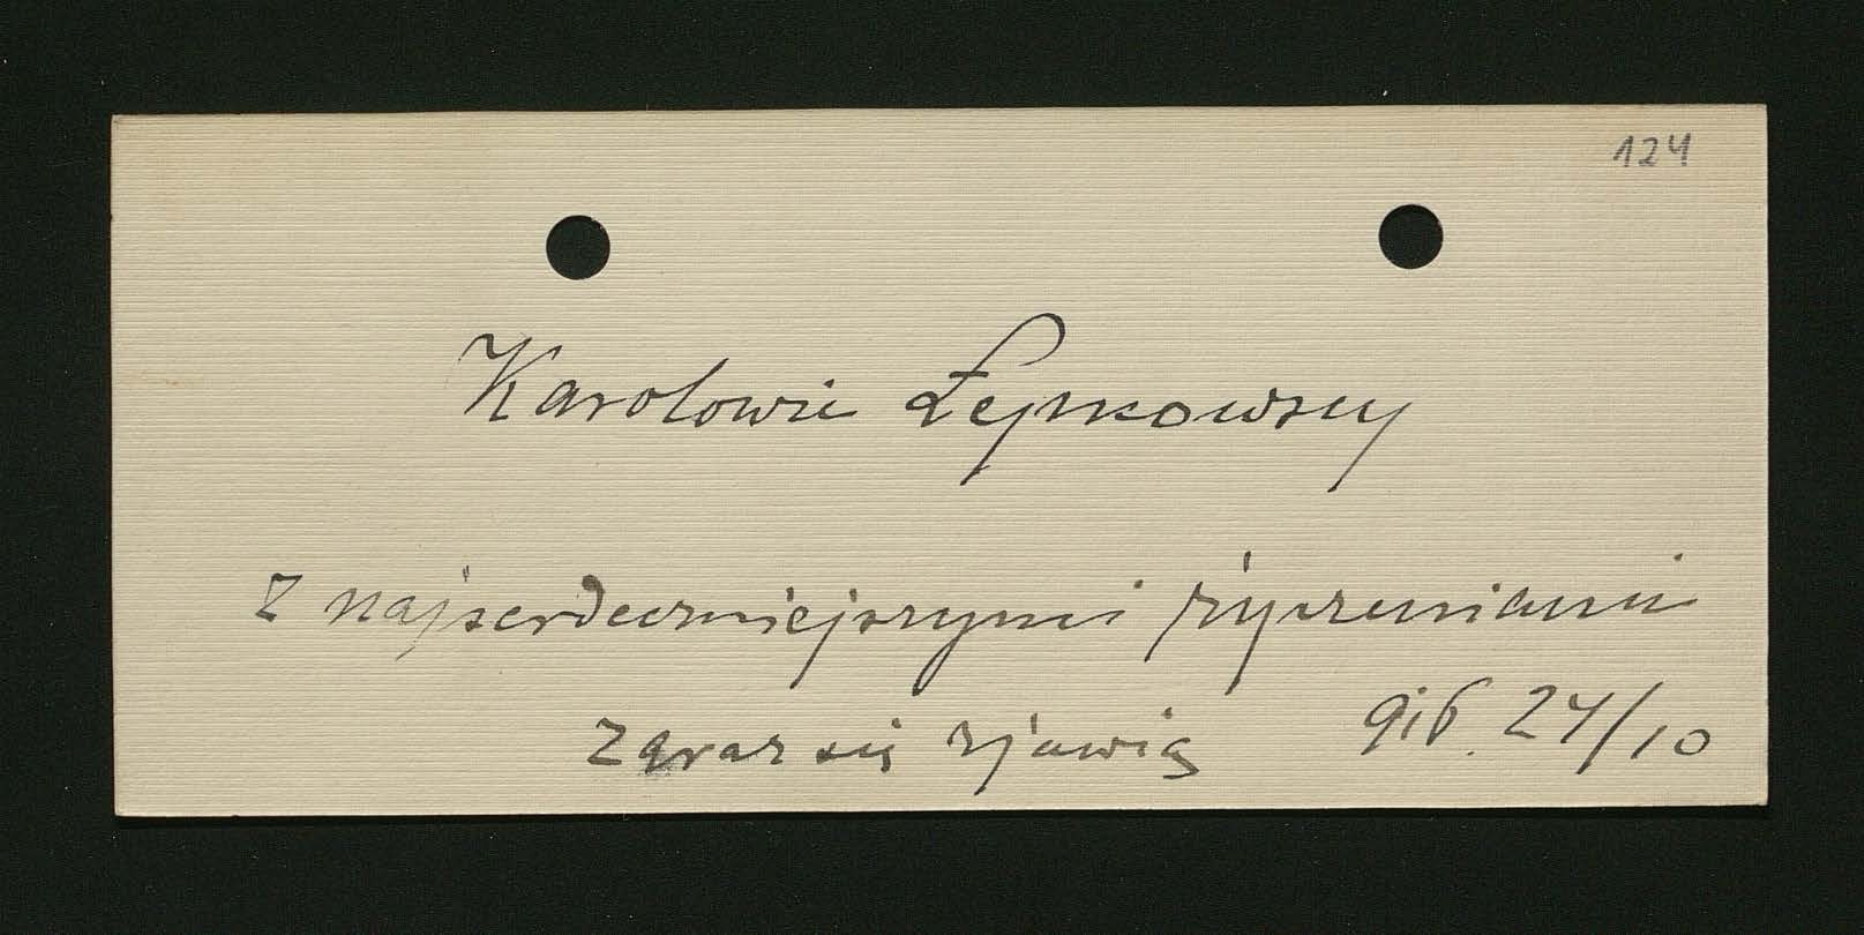 124
Karolowie Zejmowscy
z najserdeczniejszymi życzeniami
Zaraz się zjawię
24/10